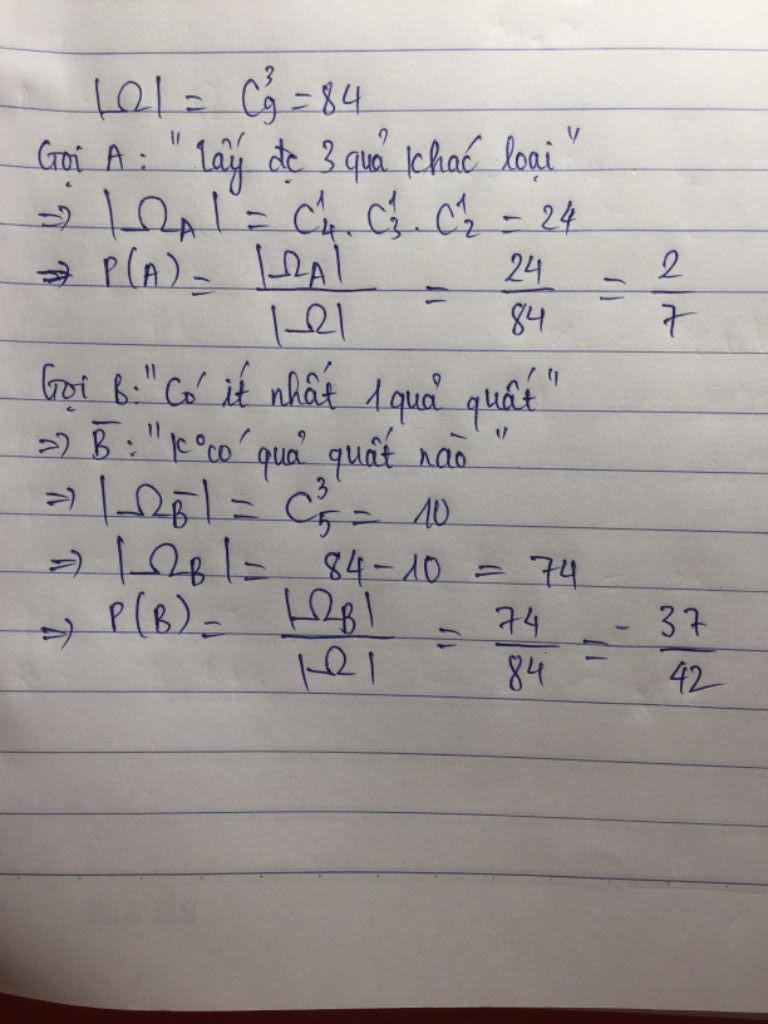 |Ω| = C₉³ = 84
Gọi A: "lấy đc 3 quả khác loại"
=> |Ω_A| = C₄¹. C₃¹. C₂¹ = 24
=> P(A) = |Ω_A| / |Ω| = 24/84 = 2/7
Gọi B: "Có ít nhất 1 quả quất"
=> B̅: "K° có quả quất nào"
=> |Ω_B̅| = C₅³ = 10
=> |Ω_B| = 84 - 10 = 74
=> P(B) = |Ω_B| / |Ω| = 74/84 = 37/42